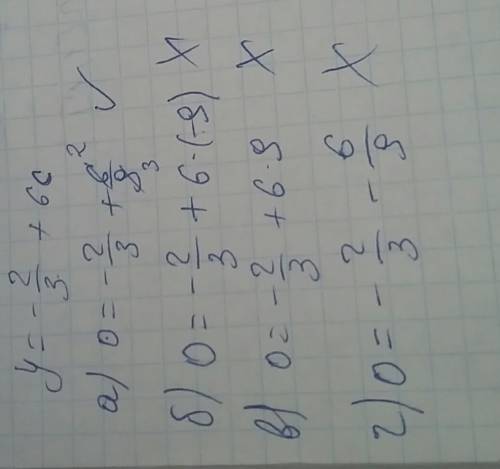 y = -2/3 + 6c
а) 0 = -2/3 + 6²/9₃ ✓
б) 0 = -2/3 + 6·(-9) X
в) 0 = -2/3 + 6·9 X
г) 0 = -2/3 - 6/9 X